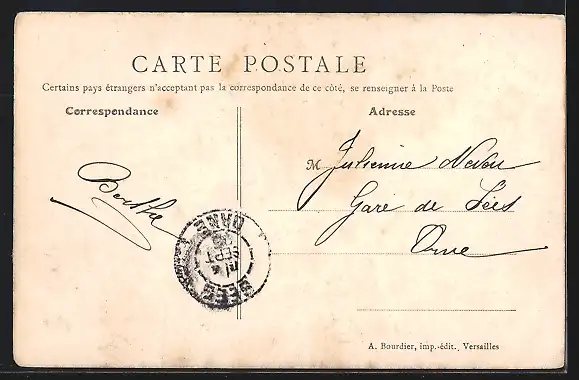 CARTE POSTALE
Certains pays étrangers n'acceptant pas la correspondance de ce côté, se renseigner à la Poste
Correspondance
Adresse
M Julienne
Gare de Sées
Orne
Berthe
ORNE
SEPT
SÉES
A. Bourdier, imp.-édit., Versailles